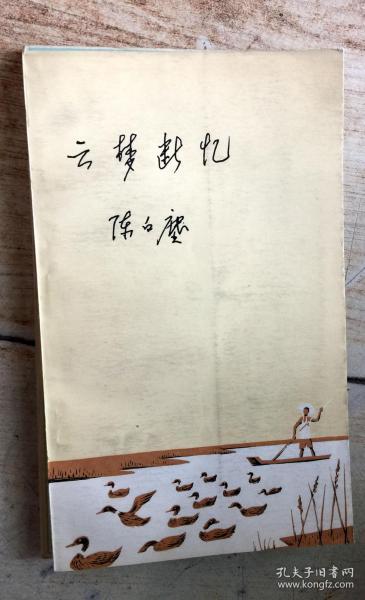 云梦断忆
陈白尘
孔夫子旧书网